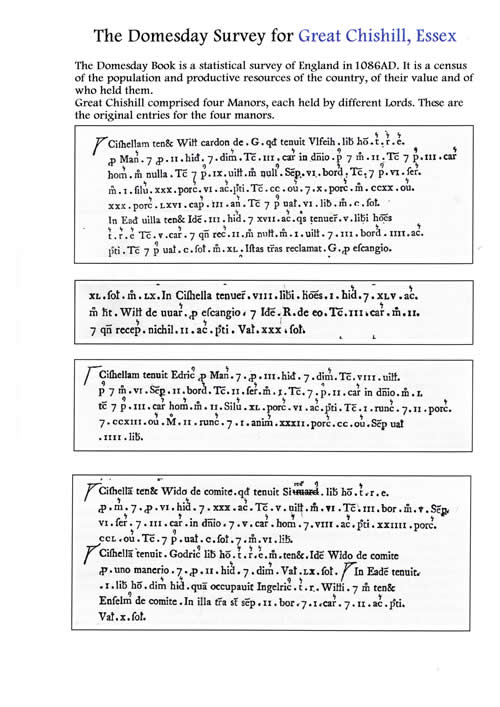 The Domesday Survey for Great Chishill, Essex
The Domesday Book is a statistical survey of England in 1086AD. It is a census
of the population and productive resources of the country, of their value and of
who held them.
Great Chishill comprised four Manors, each held by different Lords. These are
the original entries for the four manors.
Ciſhellam ten& Willt cardon de . G . qđ tenuit Vlfeih . lib hō . t . r . e .
ꝓ Man . 7 . ꝓ . II . hiđ . 7 . dim . Tc̄ . III . car̉ in dn̄io . p̉ 7 m̊ . II . Tc̄ 7 p̉ . III . car̉
hom . m̊ nulla . Tc̄ 7 p̉ . IX . uillt . m̊ null . Sēp . VI . bord . Tc̄ . 7 p̉ . VI . ſer̉ .
m̊ . I . ſilu . XXX . porc̉ . VI . ac̉ . p̉ti . Tc̄ . CC . oủ . 7 . X . porc̉ . m̊ . CCXX . oủ .
XXX . porc̉ . LXVI . cap̉ . III . an̉ . Tc̄ 7 p̉ uat . VI . lib . m̊ . C . ſot .
In Ead uilla ten& Idē . III . hiđ . 7 XVII . ac̉ . qs̉ tenuer̉ . V . libi hōēs
t . r . e Tc̄ . V . car̉ . 7 qn̄ rec̉ . II . m̊ nullt . m̊ . I . uillt . 7 . III . bord . IIII . ac̉ .
p̉ti . Tc̄ 7 p̉ uat . C . ſot . m̊ . XL . Iſtas tr̄as reclamat . G . ꝓ eſcangio .
XL . ſot . m̊ . LX . In Ciſhella tenuer̉ . VIII . libi . hōēs . I . hiđ . 7 . XLV . ac̉ .
m̊ ht̄ . Willt de uuar̉ . ꝓ eſcangio . 7 Idē . R . de eo . Tc̄ . III . car̉ . m̊ . II .
7 qn̄ recep̉ . nichil . II . ac̉ . p̉ti . Vat . XXX . ſot .
Ciſhellam tenuit Edric̉ ꝓ Man̉ . 7 . ꝓ . III . hiđ . 7 . dim̉ . Tc̄ . VIII . uillt .
p̉ 7 m̊ . VI . Sēp . II . bord . Tc̄ . II . ſer̉ . m̊ . I . Tc̄ . 7 . p̉ . II . car̉ in dn̄io . m̊ . I .
tc̄ 7 p̉ . III . car̉ hom̉ . m̊ . II . Silủ . XL . porc̉ . VI . ac̉ . p̉ti . Tc̄ . I . runc̉ . 7 . II . porc̉ .
7 . CCXIII . oủ . M̊ . II . runc̉ . 7 . I . anim̉ . XXXII . porc̉ . CC . oủ . Sēp uat
. IIII . lib .
Ciſhellā ten& Wido de comite . qđ tenuit . lib hō . t . r . e .
ꝓ . m̊ . 7 . ꝓ . VI . hiđ . 7 . XXX . ac̉ . Tc̄ . V . uillt . m̊ . VI . Tc̄ . III . bor . m̊ . V . Sēp .
VI . ſer̉ . 7 . III . car̉ . in dn̄io . 7 . V . car̉ . hom̉ . 7 . VIII . ac̉ . p̉ti . XXIIII . porc̉ .
CCL . oủ . Tc̄ . 7 p̉ . uat . C . ſot . 7 . m̊ . VI . lib .
Ciſhellā tenuit . Godric̉ lib hō . t . r . e . m̊ . ten& . Idē Wido de comite
ꝓ . uno manerio . 7 . ꝓ . II . hiđ . 7 . dim̉ . Vat . LX . ſot . In Eadē tenuit .
. I . lib hō . dim̉ hiđ . quā occupauit Ingelric̉ . t . r . Willi . 7 m̊ ten&
Enſelm̉ de comite . In illa tr̄a st̄ sēp . II . bor . 7 . I . car̉ . 7 . II . ac̉ . p̉ti .
Vat . X . ſot .